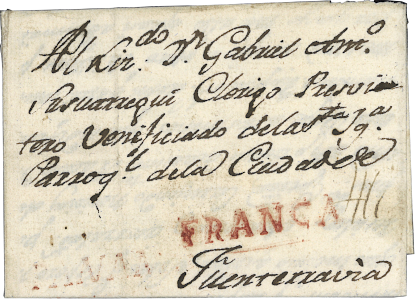 Al Lir.do Dn Gabriel Amo.
Clerigo Presvi
tero Veneficiado de la Sta Iga.
Parroql. de la Ciudad de
FRANCA
Fuenterravia